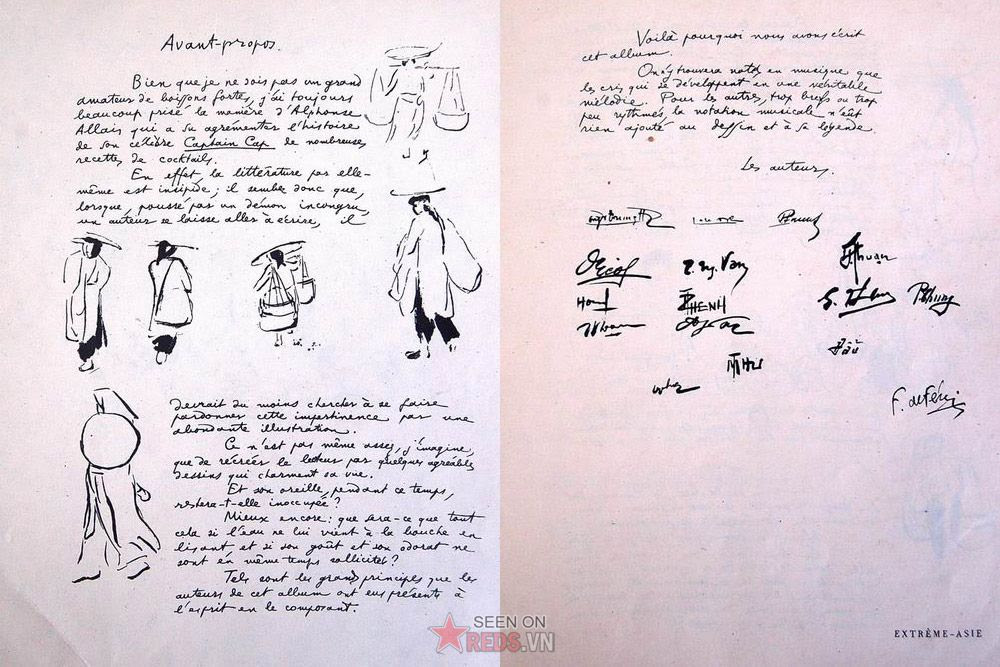 Avant-propos.
Bien que je ne sois pas un grand
amateur de boissons fortes, j'ai toujours
beaucoup prisé la manière d'Alphonse
Allais qui a su agrémenter l'histoire
de son célèbre Captain Cap de nombreuses
recettes de cocktails.
En effet, la littérature par elle-
même est insipide; il semble donc que,
lorsque, poussé par un démon incongru,
un auteur se laisse aller à écrire, il
devrait du moins chercher à se faire
pardonner cette impertinence par une
abondante illustration.
Ce n'est pas même assez, j'imagine,
que de récréer le lecteur par quelques agréables
dessins qui charment sa vue.
Et son oreille, pendant ce temps,
restera-t-elle inoccupée?
Mieux encore: que sera-ce que tout
cela si l'eau ne lui vient à la bouche en
lisant et si son goût et son odorat ne
sont en même temps sollicités?
Tels sont les grands principes que les
auteurs de cet album ont eus présents à
l'esprit en le composant.
Voilà pourquoi nous avons écrit
cet album.
On y trouvera notés en musique que
les cris qui se développent en une véritable
mélodie. Pour les autres, trop brefs ou trop
peu rythmés, la notation musicale n'eût
rien ajouté au dessin et à sa légende.
Les auteurs.
Thuan
PHENH
Phung
THU
Dâu
F. de Fénis
EXTRÊME-ASIE
SEEN ON
REDS.VN